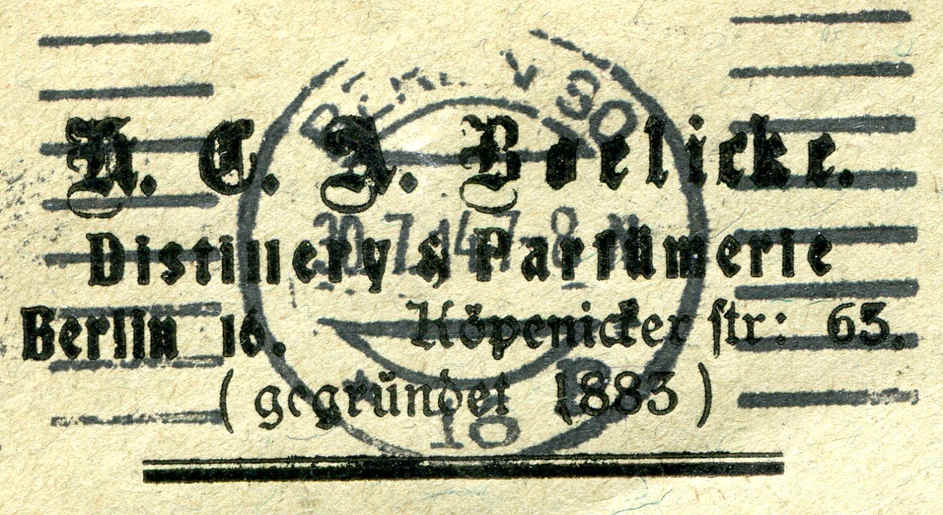 C. A. Boelicke.
Distillery & Parfümerie
Berlin 16. Köpenicker ſtr: 63.
(gegründet 1883)
BERLIN SO
30.7.14.7-8 N
16